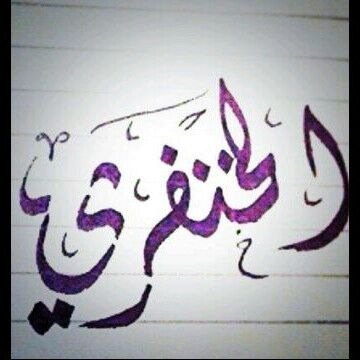 الخنفري